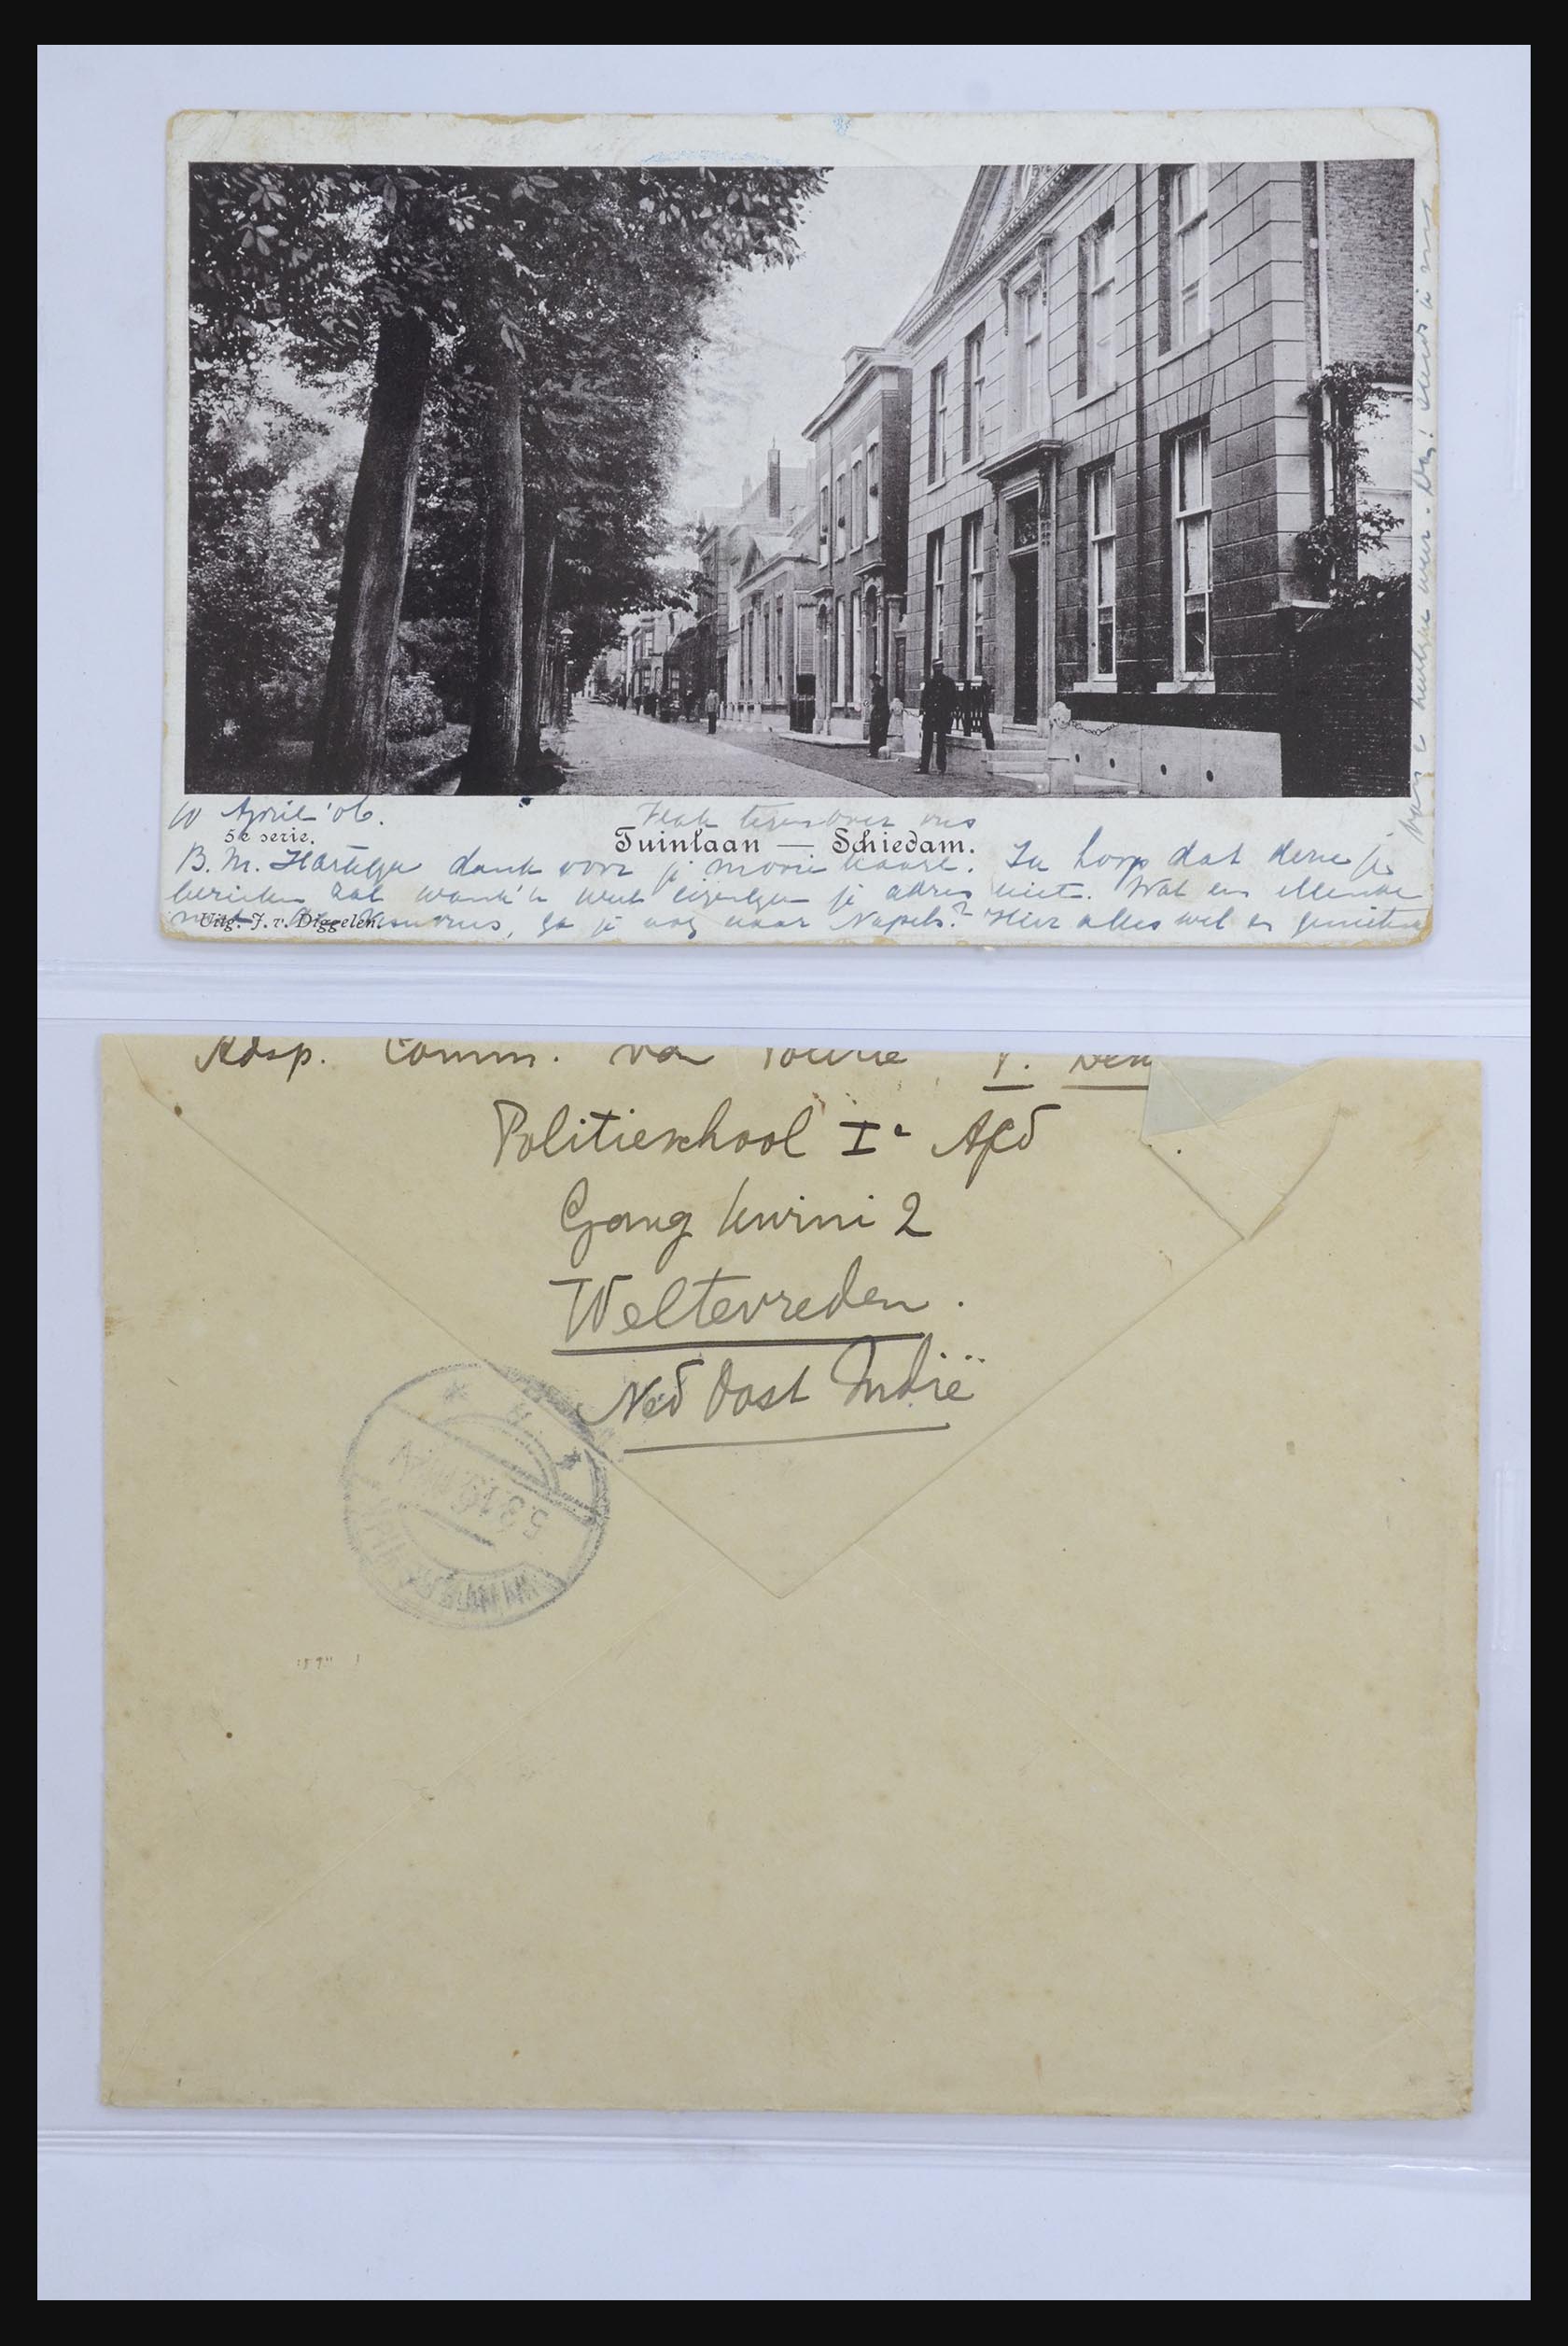 10 April '06.
Vlak tegenover ons
5e serie.
Tuinlaan — Schiedam.
B. M. Hartelijk dank voor je mooie kaart. Ik hoop dat deze je
bereiken zal want 'k weet eigenlijk je adres niet. Wat een ellende
met de Vesuvius, ga je nog naar Napels? Hier alles wel en genieten
Uitg. J. v. Diggelen.
van 't weer. Dag!
Adsp. Comm. van Politie
Politieschool Ie Afd
Gang Kwini 2
Weltevreden.
Ned Oost Indië
5.3.19